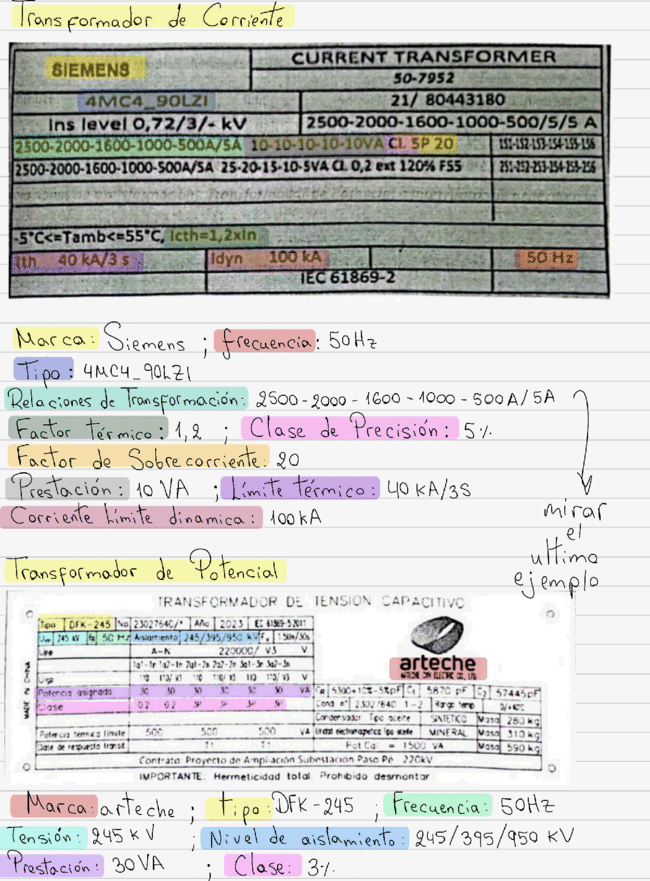 Transformador de Corriente
SIEMENS
CURRENT TRANSFORMER
50-7952
4MC4_90LZI
21/ 80443180
Ins level 0,72/3/- kV
2500-2000-1600-1000-500/5/5 A
2500-2000-1600-1000-500A/5A 10-10-10-10-10VA Cl. 5P 20
151-152-153-154-155-156
2500-2000-1600-1000-500A/5A 25-20-15-10-5VA Cl. 0,2 ext 120% FS5
251-252-253-254-255-256
-5°C<=Tamb<=55°C, Icth=1,2xIn
Ith 40 kA/3 s
Idyn 100 kA
50 Hz
IEC 61869-2
Marca: Siemens ; frecuencia: 50Hz
Tipo: 4MC4_90LZI
Relaciones de Transformación: 2500-2000-1600-1000-500A/5A
Factor térmico: 1,2 ; Clase de Precisión: 5%
Factor de Sobrecorriente: 20
Prestación: 10 VA ; Límite térmico: 40 kA/3S
Corriente Límite dinamica: 100kA
mirar
el
ultimo
ejemplo
Transformador de Potencial
TRANSFORMADOR DE TENSION CAPACITIVO
Tipo DFK-245 No 23027640/* Año 2023 IEC 61869-5:2011
245 kV 50 Hz Aislamiento 245/395/950 kV 1.5Un/30s
A-N 220000/ √3 V
MADE IN CHINA
Potencia asignada 30 30 30 30 30 30 VA
5300+10%-5%pF C1 5870 pF C2 57445pF
Clase 0.2 0.2 3P 3P 3P 3P
Cond nº 23027640 1-2
Condensador Tipo aceite SINTETICO Masa 280 kg
Potencia termica limite 500 500 500 VA
MINERAL Masa 310 kg
Clase de respuesta transit T1 T1
= 1500 VA Masa 590 kg
arteche
Contrato: Proyecto de Ampliación Subestación Paso Pe 220kV
IMPORTANTE: Hermeticidad total. Prohibido desmontar
Marca: arteche ; tipo: DFK-245 ; Frecuencia: 50Hz
Tensión: 245 kV ; Nivel de aislamiento: 245/395/950 KV
Prestación: 30 VA ; Clase: 3%